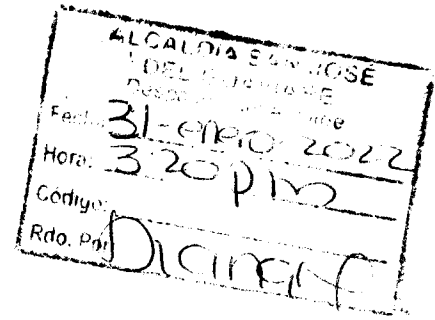 ALCALDIA SAN JOSÉ
DEL
Fecha: 31-enero 2022
Hora: 3 20 pm
Código:
Rdo. Por